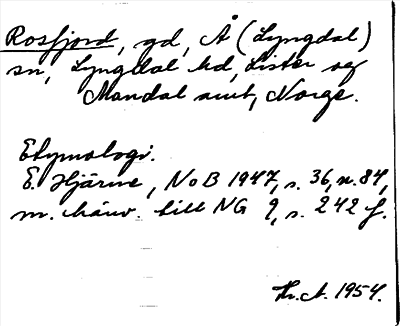 Rosfjord, gd, Å (Lyngdal)
sn, Lyngdal hd, Lister og
Mandal amt, Norge.
Etymologi.
E. Hjärne, NoB 1947, s. 36, n. 84,
m. hänv. till NG 9, s. 242 f.
Hr. A. 1954.